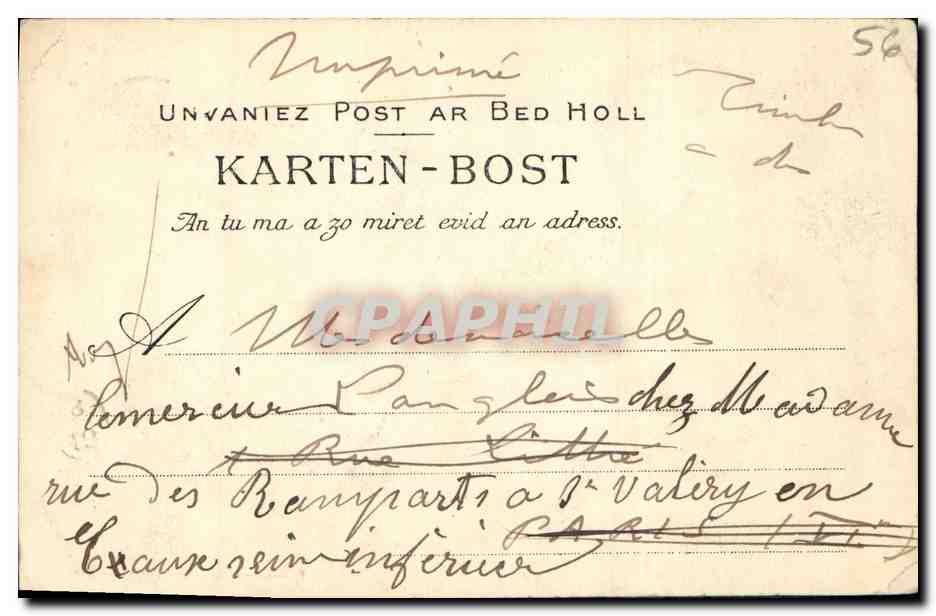 56
Imprimé
Timbre
a des
UNVANIEZ POST AR BED HOLL
KARTEN-BOST
An tu ma a zo miret evid an adress.
A Mesdemoiselles
Lemercier Langlois chez Madame
4 Rue Littré
rue des Ramparts a St Valéry en
PARIS (VIe)
Caux seine inférieure
CPARHTI